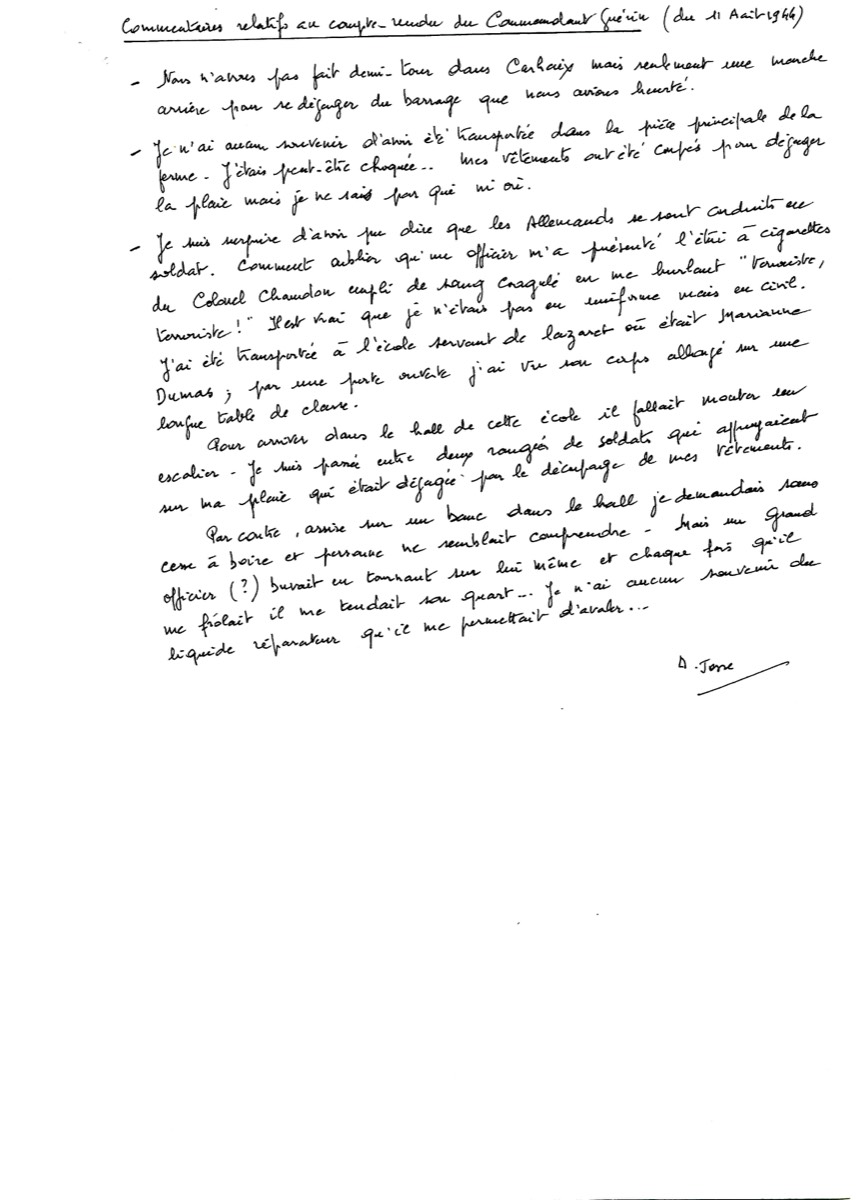 Commentaires relatifs au compte-rendu du Commandant Guérin (du 11 Août 1944)
- Nous n'avons pas fait demi-tour dans Carhaix mais seulement une marche
arrière pour se dégager du barrage que nous avions heurté.
- Je n'ai aucun souvenir d'avoir été transportée dans la pièce principale de la
ferme - J'étais peut-être choquée.. mes vêtements ont été coupés pour dégager
la plaie mais je ne sais par qui ni où.
- Je suis surprise d'avoir pu dire que les Allemands se sont conduits en
soldat. Comment oublier qu'un officier m'a présenté l'étui à cigarettes
du Colonel Chandon empli de sang coagulé en me hurlant "Terroriste,
terroriste !" Il est vrai que je n'étais pas en uniforme mais en civil.
J'ai été transportée à l'école servant de lazaret où était Marianne
Dumas ; par une porte ouverte j'ai vu son corps allongé sur une
longue table de classe.
Pour arriver dans le hall de cette école il fallait monter un
escalier - Je suis passée entre deux rangées de soldats qui appuyaient
sur ma plaie qui était dégagée par le découpage de mes vêtements.
Par contre, assise sur un banc dans le hall je demandais sans
cesse à boire et personne ne semblait comprendre - Mais un grand
officier (?) buvait en tournant sur lui même et chaque fois qu'il
me frôlait il me tendait son quart... Je n'ai aucun souvenir du
liquide réparateur qu'il me permettait d'avaler...